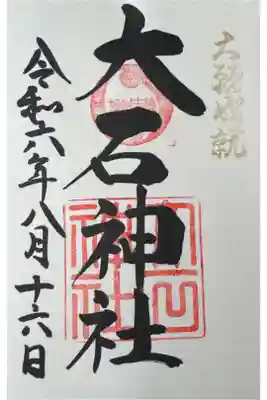 大願成就
大石神社
大石
神社
令和六年八月十六日